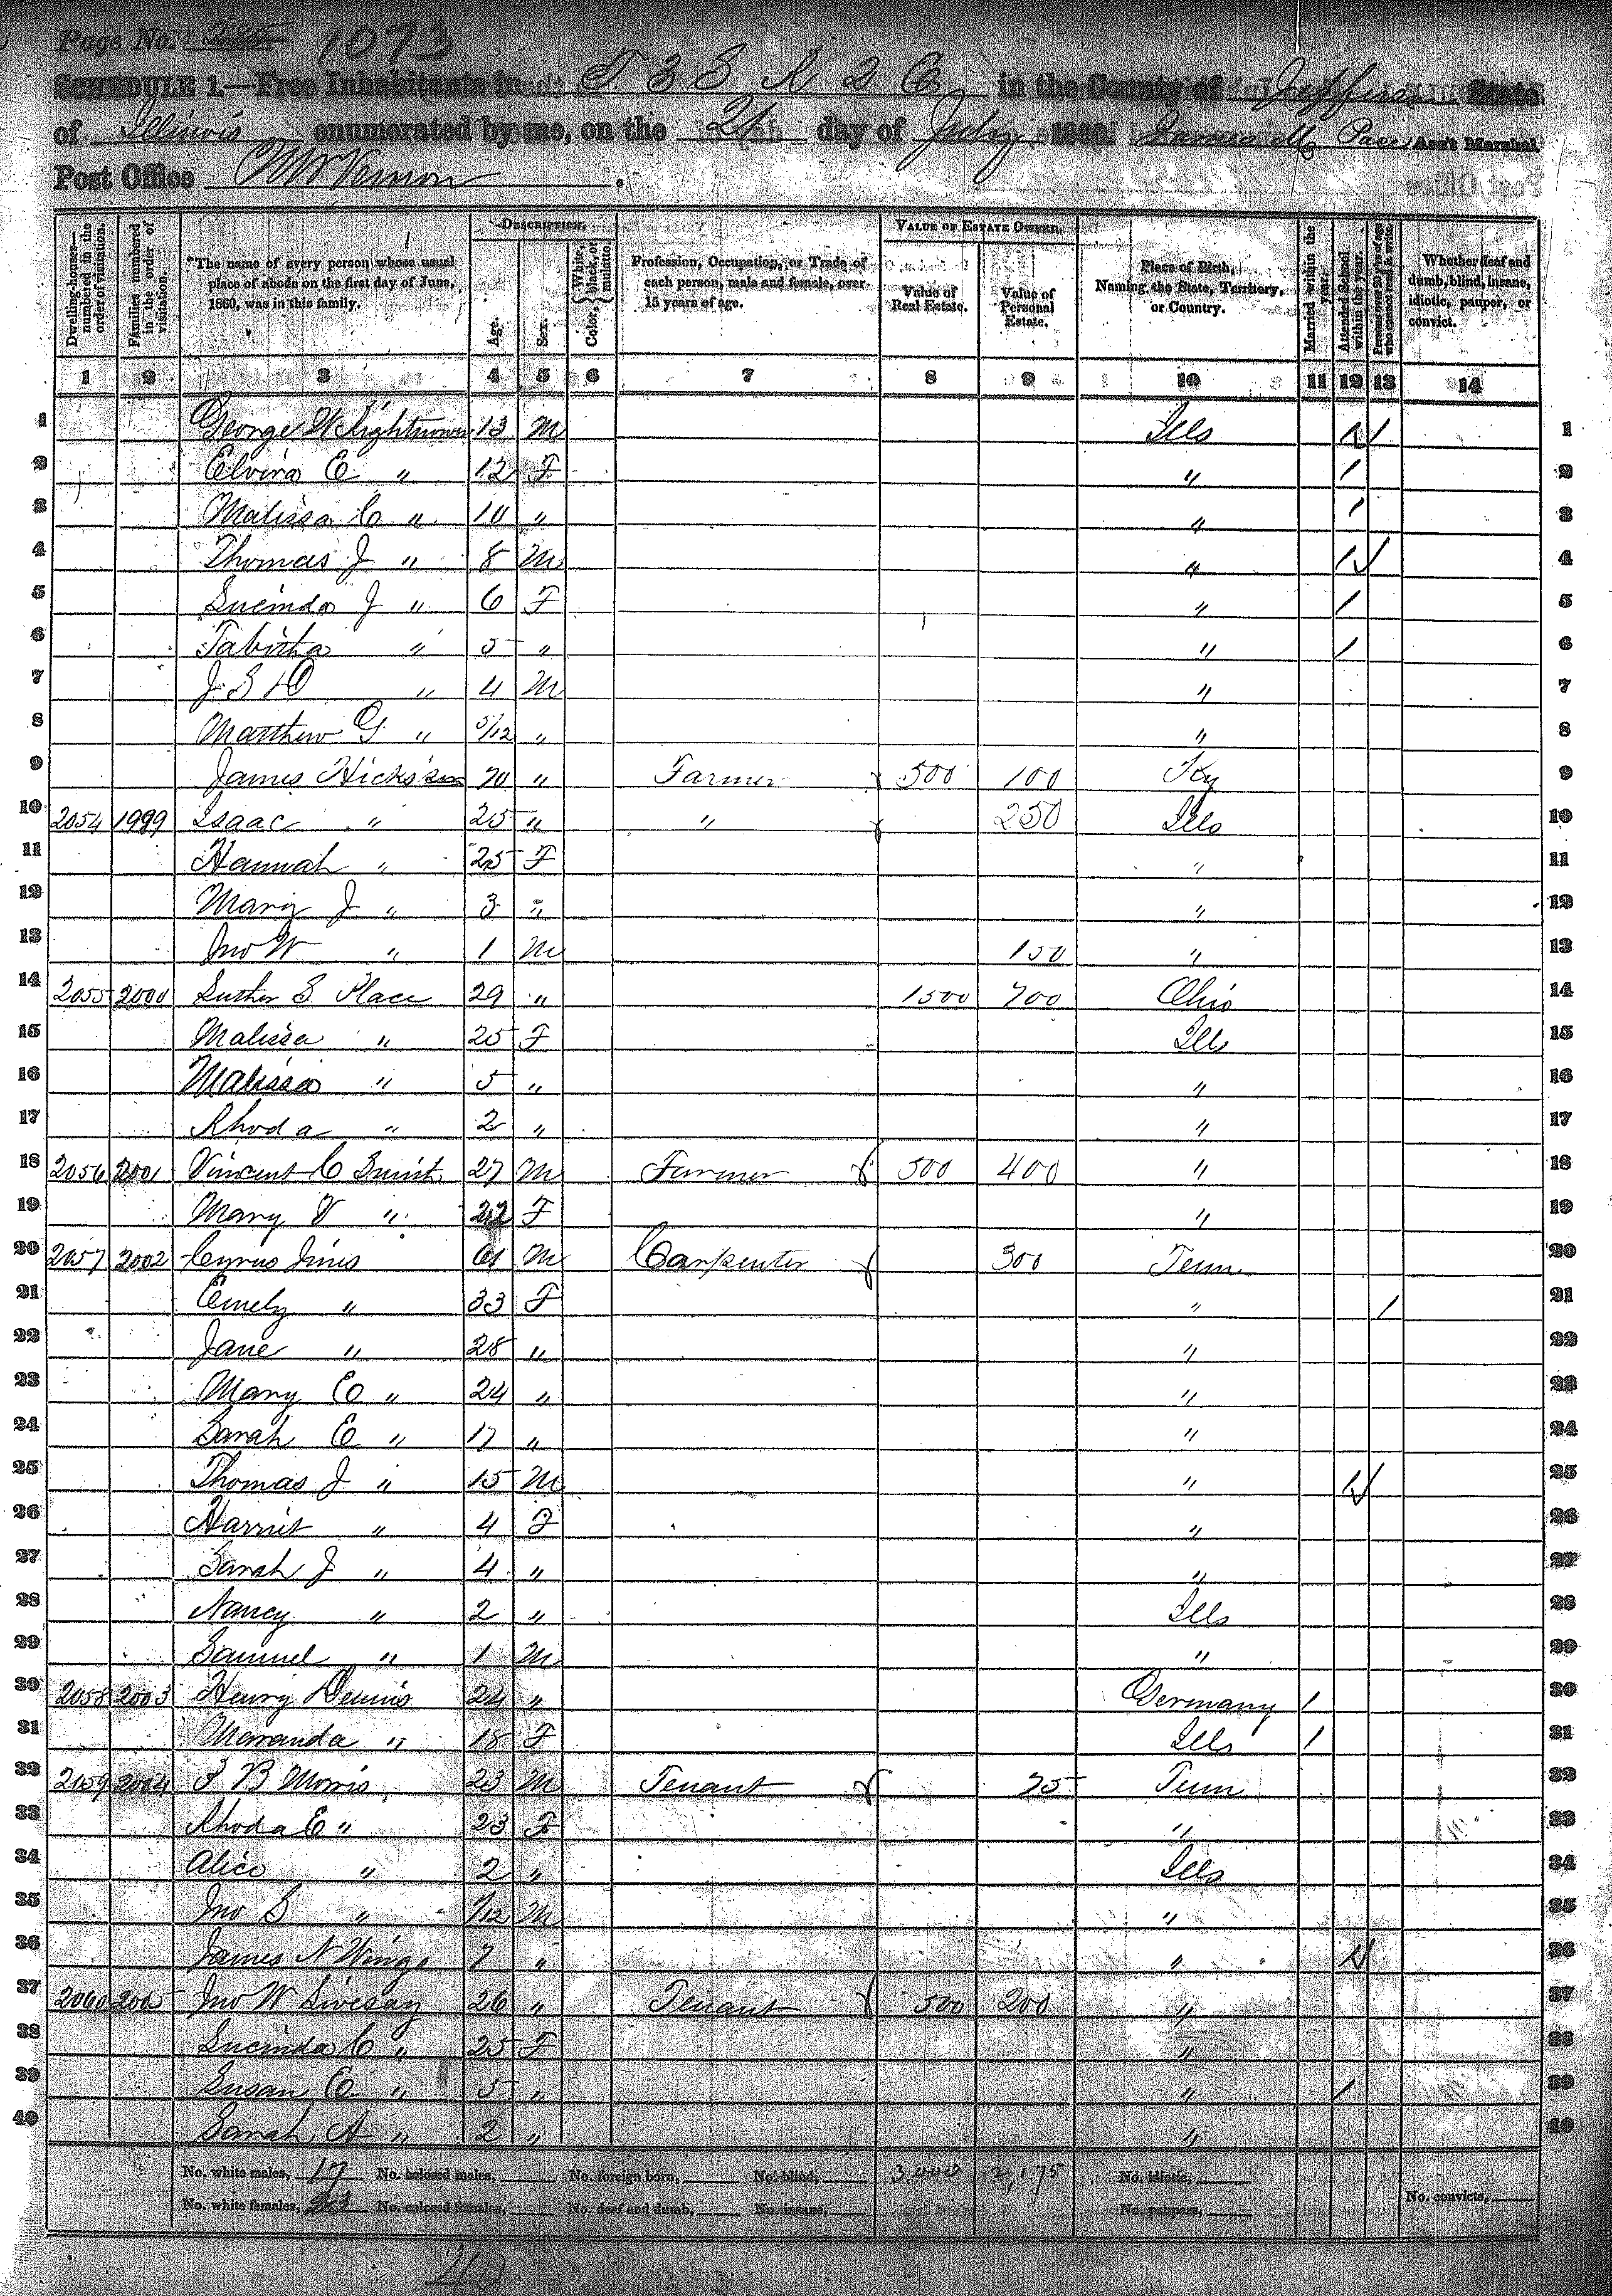 Page No. 285 1073
SCHEDULE 1.—Free Inhabitants in T 3 S R 3 E in the County of Jefferson State
of Illinois enumerated by me, on the 21 day of July 1860. James M. Pace Ass't Marshal
Post Office Mt Vernon.
Dwelling-houses—numbered in the order of visitation. Families numbered in the order of visitation. The name of every person whose usual place of abode on the first day of June, 1860, was in this family. DESCRIPTION. Age. Sex. Color, { White, black, or mulatto. Profession, Occupation, or Trade of each person, male and female, over 15 years of age. VALUE OF ESTATE OWNED. Value of Real Estate. Value of Personal Estate. Place of Birth, Naming the State, Territory, or Country. Married within the year. Attended School within the year. Persons over 20 y'rs of age who cannot read & write. Whether deaf and dumb, blind, insane, idiotic, pauper, or convict.
1 2 3 4 5 6 7 8 9 10 11 12 13 14
1 George W 13 M Ills 1 1
2 Elvira E " 12 F " 1 2
3 Malissa C " 10 " " 1 3
4 Thomas J " 8 M " 1 4
5 Lucinda J " 6 F " 1 5
6 Tabitha " 5 " " 1 6
7 J S D " 4 M " 7
8 Matthew G " 5/12 " " 8
9 James Hicks 70 " Farmer 500 100 Ky 9
10 2054 1999 Isaac " 25 " " 250 Ills 10
11 Hannah " 25 F " 11
12 Mary J " 3 " " 12
13 Jno W " 1 M 150 " 13
14 2055 2000 Luther S Place 29 " 1500 700 Ohio 14
15 Malissa " 25 F Ills 15
16 Malissa " 5 " " 16
17 Rhoda " 2 " " 17
18 2056 2001 Vincent C Smith 27 M Farmer 500 400 " 18
19 Mary V " 22 F " 19
20 2057 2002 Cyrus 61 M Carpenter 300 Tenn 20
21 Emely " 33 F " 1 21
22 Jane " 28 " " 22
23 Mary E " 24 " " 23
24 Sarah E " 17 " " 24
25 Thomas J " 15 M " 1 25
26 Harriet " 4 F " 26
27 Sarah J " 4 " " 27
28 Nancy " 2 " Ills 28
29 Samuel " 1 M " 29
30 2058 2003 Henry Dennis 24 " Germany 1 30
31 Maranda " 18 F Ills 1 31
32 2059 2004 B Morris 23 M Tenant 75 Tenn 32
33 Rhoda E " 23 F " 33
34 Alice " 2 " Ills 34
35 Jno S " M " 35
36 James N Wing 7 " " 1 36
37 2060 2005 Jno W Livesay 26 " Tenant 500 200 " 37
38 Lucinda C " 25 F " 38
39 Susan E " 5 " " 1 39
40 Sarah A " 2 " " 40
No. white males, 17 No. colored males, No. foreign born, No. blind, 3,000 2,175 No. idiotic,
No. white females, 23 No. colored females, No. deaf and dumb, No. insane, No. paupers, No. convicts,
40